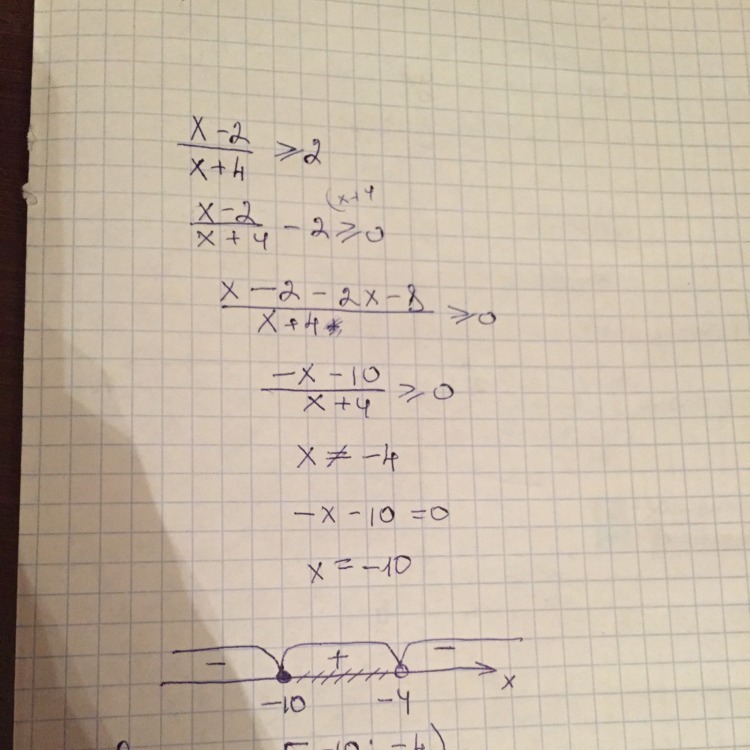 x - 2 / x + 4 ⩾ 2
(x+4
x - 2 / x + 4 - 2 ⩾ 0
x - 2 - 2x - 8 / x + 4 ⩾ 0
-x - 10 / x + 4 ⩾ 0
x ≠ -4
-x - 10 = 0
x = -10
- + -
-10 -4 x
[-10; -4)